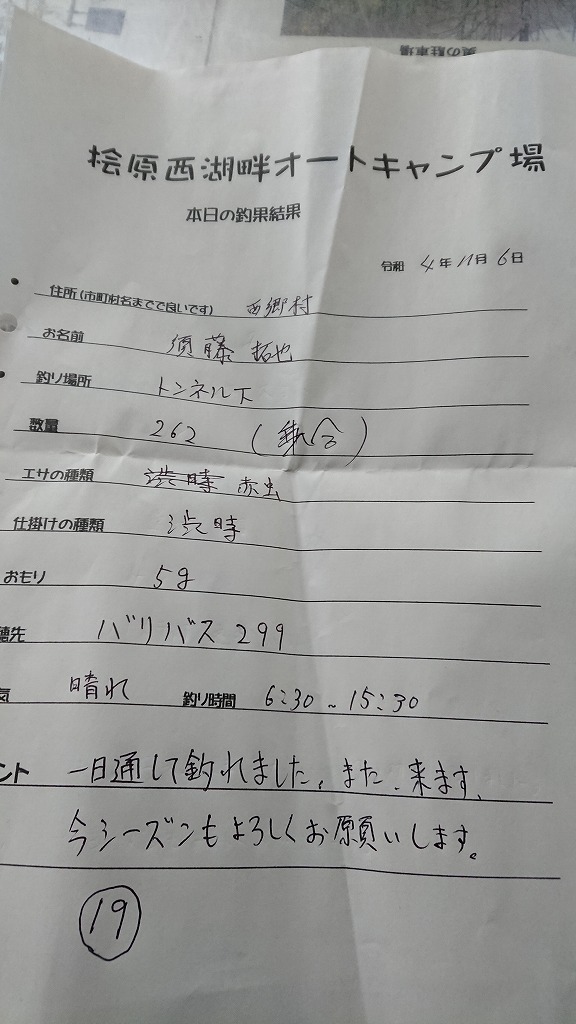 奥の駐車場
桧原西湖畔オートキャンプ場
本日の釣果結果
令和 4年11月6日
住所(市町村名までで良いです) 西郷村
お名前 須藤 拓也
釣り場所 トンネル下
数量 262 (乗合)
エサの種類 渋時 赤虫
仕掛けの種類 渋時
おもり 5g
穂先 バリバス 299
気 晴れ 釣り時間 6:30~15:30
ント 一日通して釣れました。また、来ます。
今シーズンもよろしくお願いします。
19